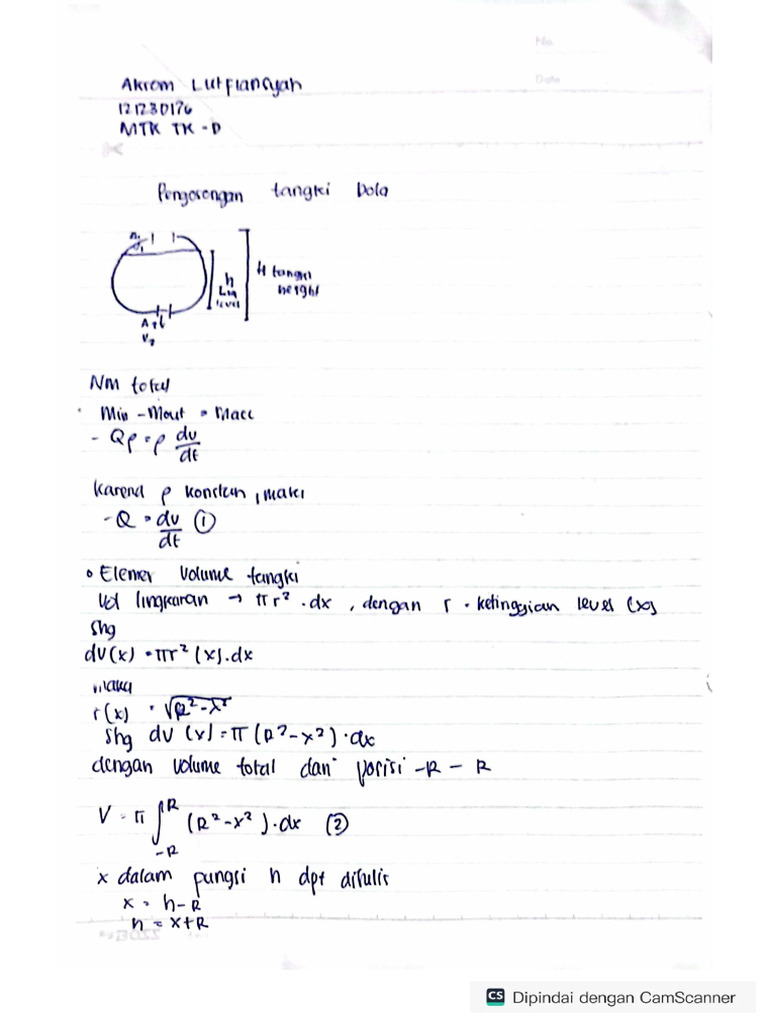 No.
Date
Akrom Lutfiansyah
121230176
MTK TK - D
Pengosongan tangki bola
h
Liq
level
H tangki
height
A2
V2
NM total
Min - Mout = Macc
- Qρ = ρ dv/dt
Karena ρ konstan, maka
- Q = dv/dt ①
• Elemen Volume tangki
Vol lingkaran → πr² . dx , dengan r = ketinggian level (x)
shg
dv(x) = πr² (x).dx
maka
r(x) = √R²-x²
shg dv (x) = π (R²-x²) . dx
dengan volume total dari posisi -R - R
V = π ∫_{-R}^{R} (R²-x²).dx ②
x dalam pungsi h dpt ditulis
x = h-R
h = x+R
CS Dipindai dengan CamScanner